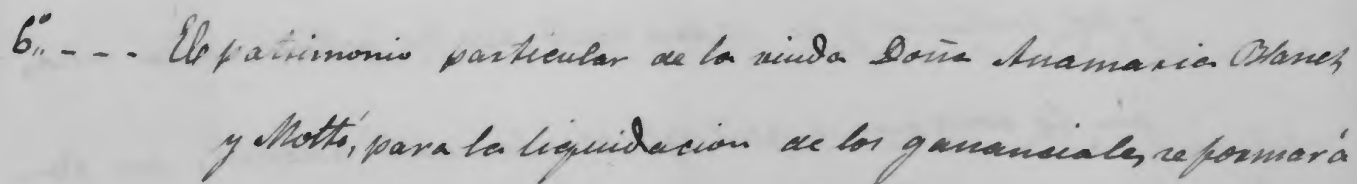 6º - - - El patrimonio particular de la viuda Doña Anamaria Blanes
y Moltó, para la liquidacion de los gananciales, se formará